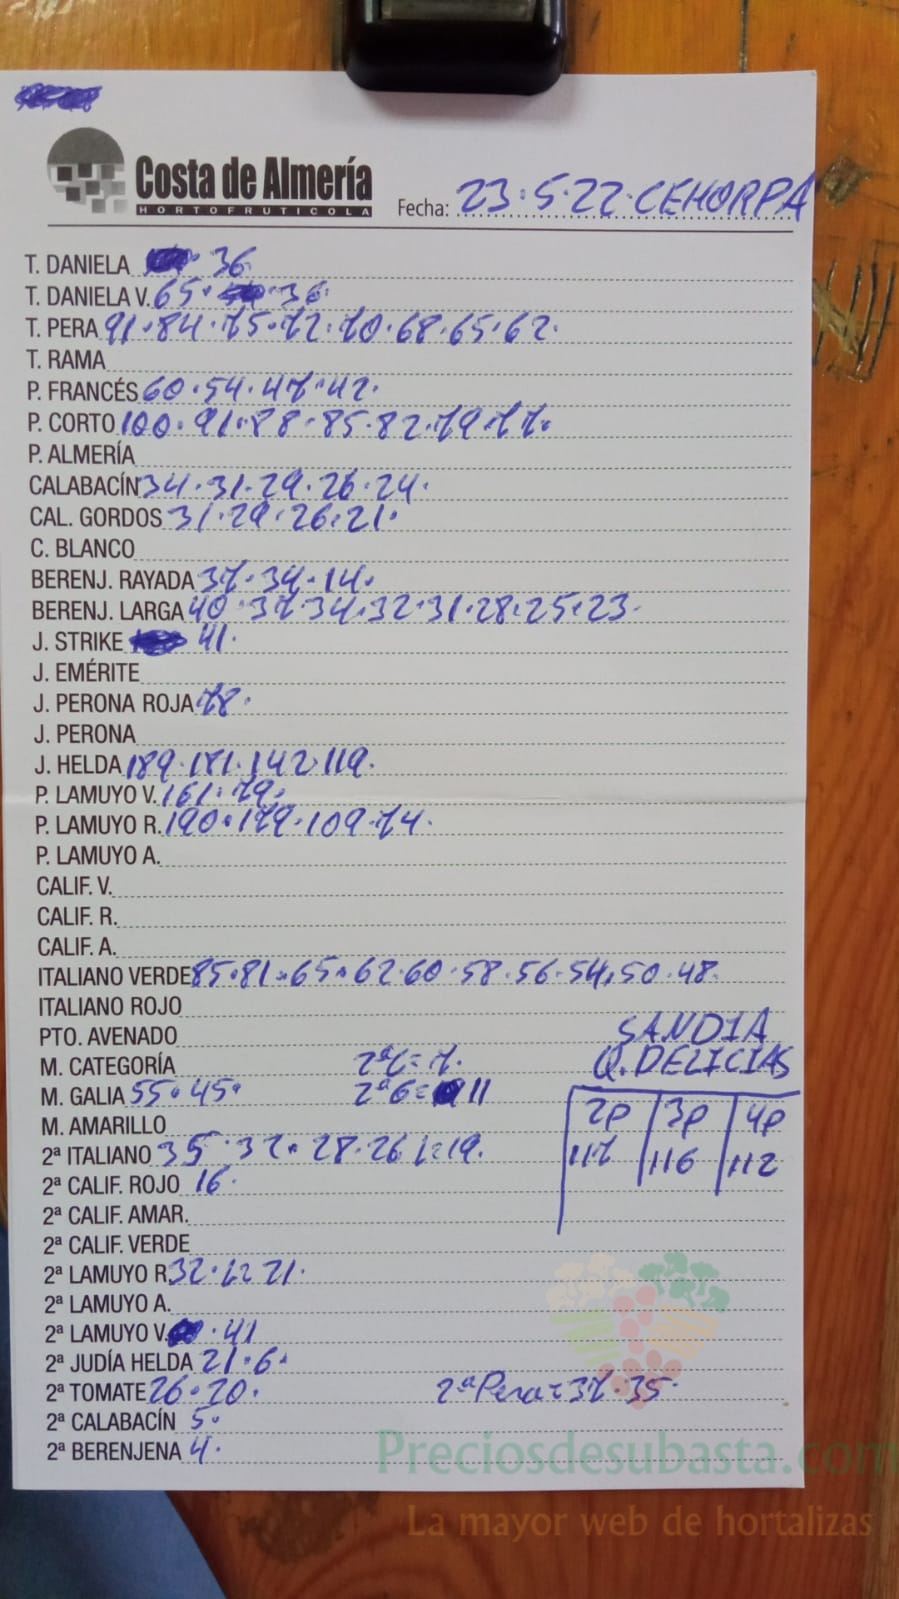 Costa de Almería
HORTOFRUTICOLA
Fecha: 23.5.22.CEHORPA
T. DANIELA 36
T. DANIELA V. 65. 36
T. PERA 91.84.75.72.70.68.65.62.
T. RAMA
P. FRANCÉS 60.54.47.42.
P. CORTO 100.91.88.85.82.79.77.
P. ALMERÍA
CALABACÍN 34.31.29.26.24.
CAL. GORDOS 31.29.26.21.
C. BLANCO
BERENJ. RAYADA 37.34.14.
BERENJ. LARGA 40.37.34.32.31.28.25.23.
J. STRIKE 41.
J. EMÉRITE
J. PERONA ROJA 78.
J. PERONA
J. HELDA 189.181.142.119.
P. LAMUYO V. 161.79.
P. LAMUYO R. 190.179.109.74.
P. LAMUYO A.
CALIF. V.
CALIF. R.
CALIF. A.
ITALIANO VERDE 85.81.65.62.60.58.56.54.50.48.
ITALIANO ROJO
PTO. AVENADO
SANDIA
Q.DELICIAS
M. CATEGORÍA 2ªC=7.
M. GALIA 55.45. 2ªG= 11
2P 3P 4P
117 116 112
M. AMARILLO
2ª ITALIANO 35.32.28.26 19.
2ª CALIF. ROJO 16.
2ª CALIF. AMAR.
2ª CALIF. VERDE
2ª LAMUYO R. 32. 21.
2ª LAMUYO A.
2ª LAMUYO V. .41
2ª JUDÍA HELDA 21.6.
2ª TOMATE 26.20. 2ªPera=37.35.
2ª CALABACÍN 5.
2ª BERENJENA 4.
Preciosdesubasta.com
La mayor web de hortalizas